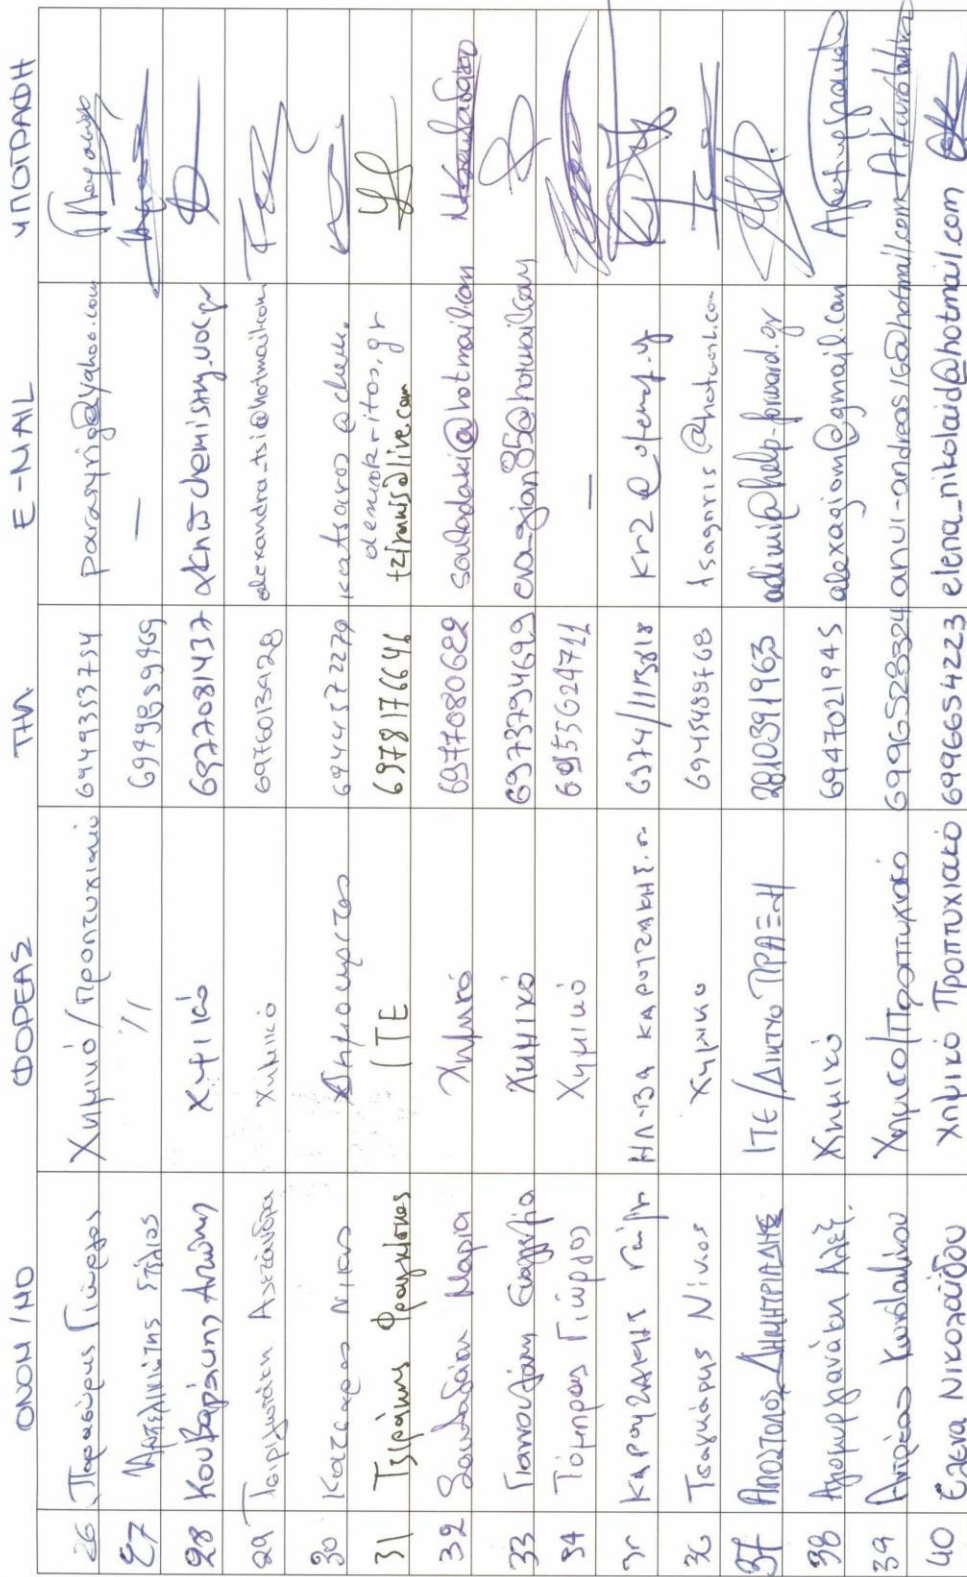 ΟΝΟΜ/ΝΟ ΦΟΡΕΑΣ ΤΗΛ. E-MAIL ΥΠΟΓΡΑΦΗ
26 Παρασύρης Γιώργος Χημικό/Προπτυχιακό 6949353734 parasyrig@yahoo.com
27 Στέλιος ·/· 6949859969 —
28 Κουβαράκης Αντώνης Χημικό 6977081437 chemistry.uoc.gr
29 Τσιριγωτάκη Αλεξάνδρα Χημικό 6976013928 alexandra-tsi@hotmail.com
30 Κατσαρος Νικος Δημοκριτος 6944572270 katsaros@chem.
demokritos.gr
31 Τζιράκης Φραγκίσκος ΙΤΕ 6978176646 tziranis@live.com
32 Σουλαδάκη Μαρία Χημικό 6977080682 souladaki@hotmail.com
33 Γιαννουλάκη Ευαγγελία Χημικό 6973794699 eva-gian85@hotmail.com
34 Τόμπρας Γιώργος Χημικό 6955624711 —
35 ΚΑΡΟΥΖΑΚΗΣ ΗΛ-ΒΑ ΚΑΡΟΥΖΑΚΗΣ 6974/1115818
36 Τσαγκάρης Νίκος Χημικο 6945489768 tsagaris@hotmail.com
37 ΑΠΟΣΤΟΛΟΣ ΔΗΜΗΤΡΙΑΔΗΣ ΙΤΕ/ΔΙΚΤΥΟ ΠΡΑΞΗ 2810391963 adimi@help-forward.gr
38 Αγιομυργιανάκη Αλεξ. Χημικό 6947021945 alexagiom@gmail.com
39 Ανδρέας Χημικό/Προπτυχιακό 6996528324
40 Έλενα Νικολαϊδου Χημικό Προπτυχιακό 6996654223 elena_nikolaid@hotmail.com